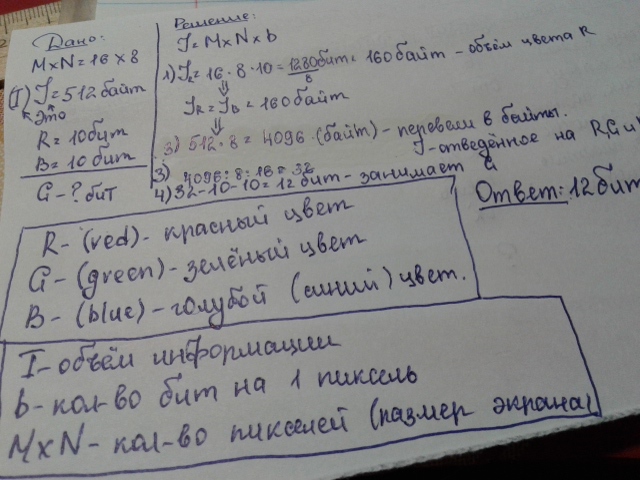 Дано:
M×N=16×8
(I) I=512 байт
Это
R=10бит
B=10 бит
G-? бит
Решение:
I=M×N×b
1) I =16·8·10=1280бит= 160байт - объём цвета R
8
I_R=I_B=160байт
3) 512·8=4096 (байт)- перевели в байты.
I-отведённое на R,G и
3) 4096:8:16=32
4)32-10-10=12бит-занимает G
Ответ: 12бит
R-(red)- красный цвет
G-(green)-зелёный цвет
B-(blue)-голубой (синий) цвет.
I-объём информации
b-кол-во бит на 1 пиксель
M×N-кол-во пикселей (размер экрана)